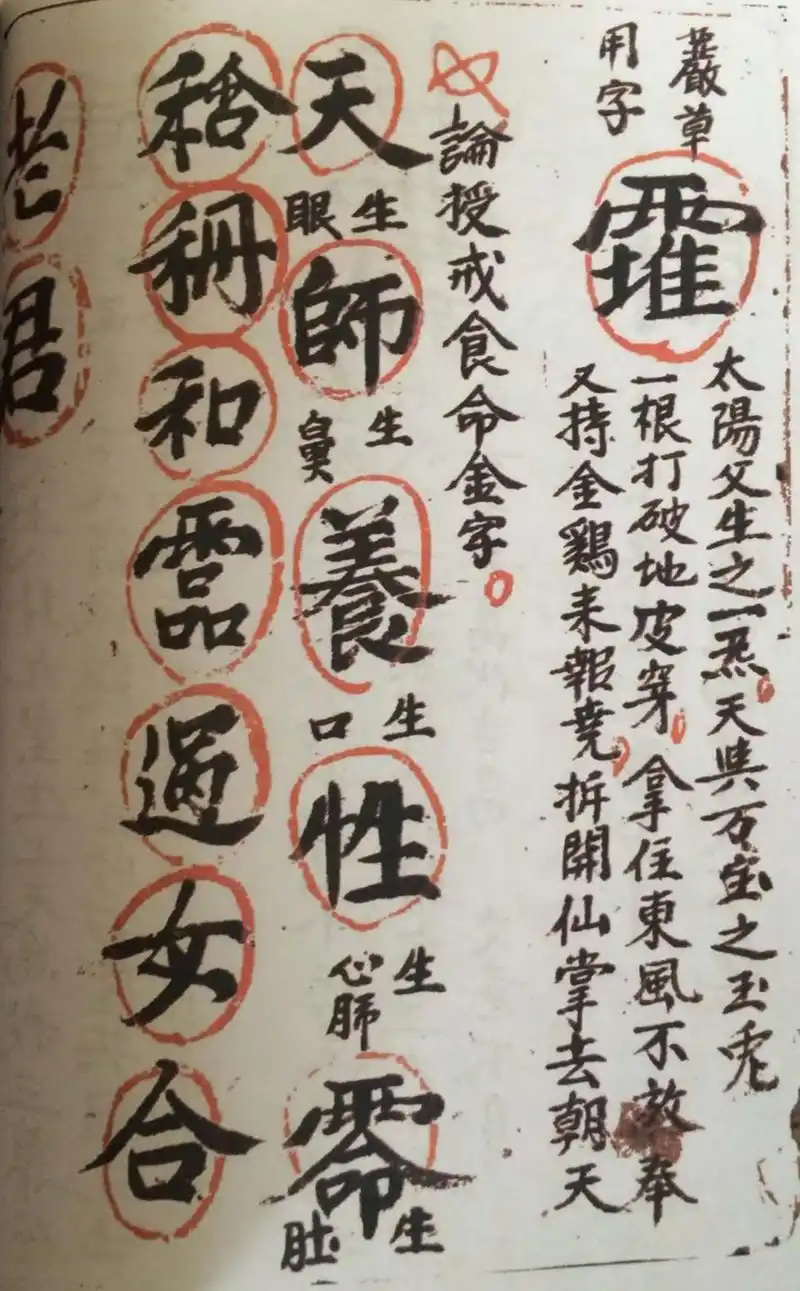 嚴草
用字
太陽父生之一炁天與石宝之玉兎
一根打破地皮穿拿住東風不放奉
又持金鷄来報堯拆開仙掌去朝天
論授戒食命金字
天
生眼
師
生鼻
養
生口
性
生心肺
生肚
和
過
女
合
老
君